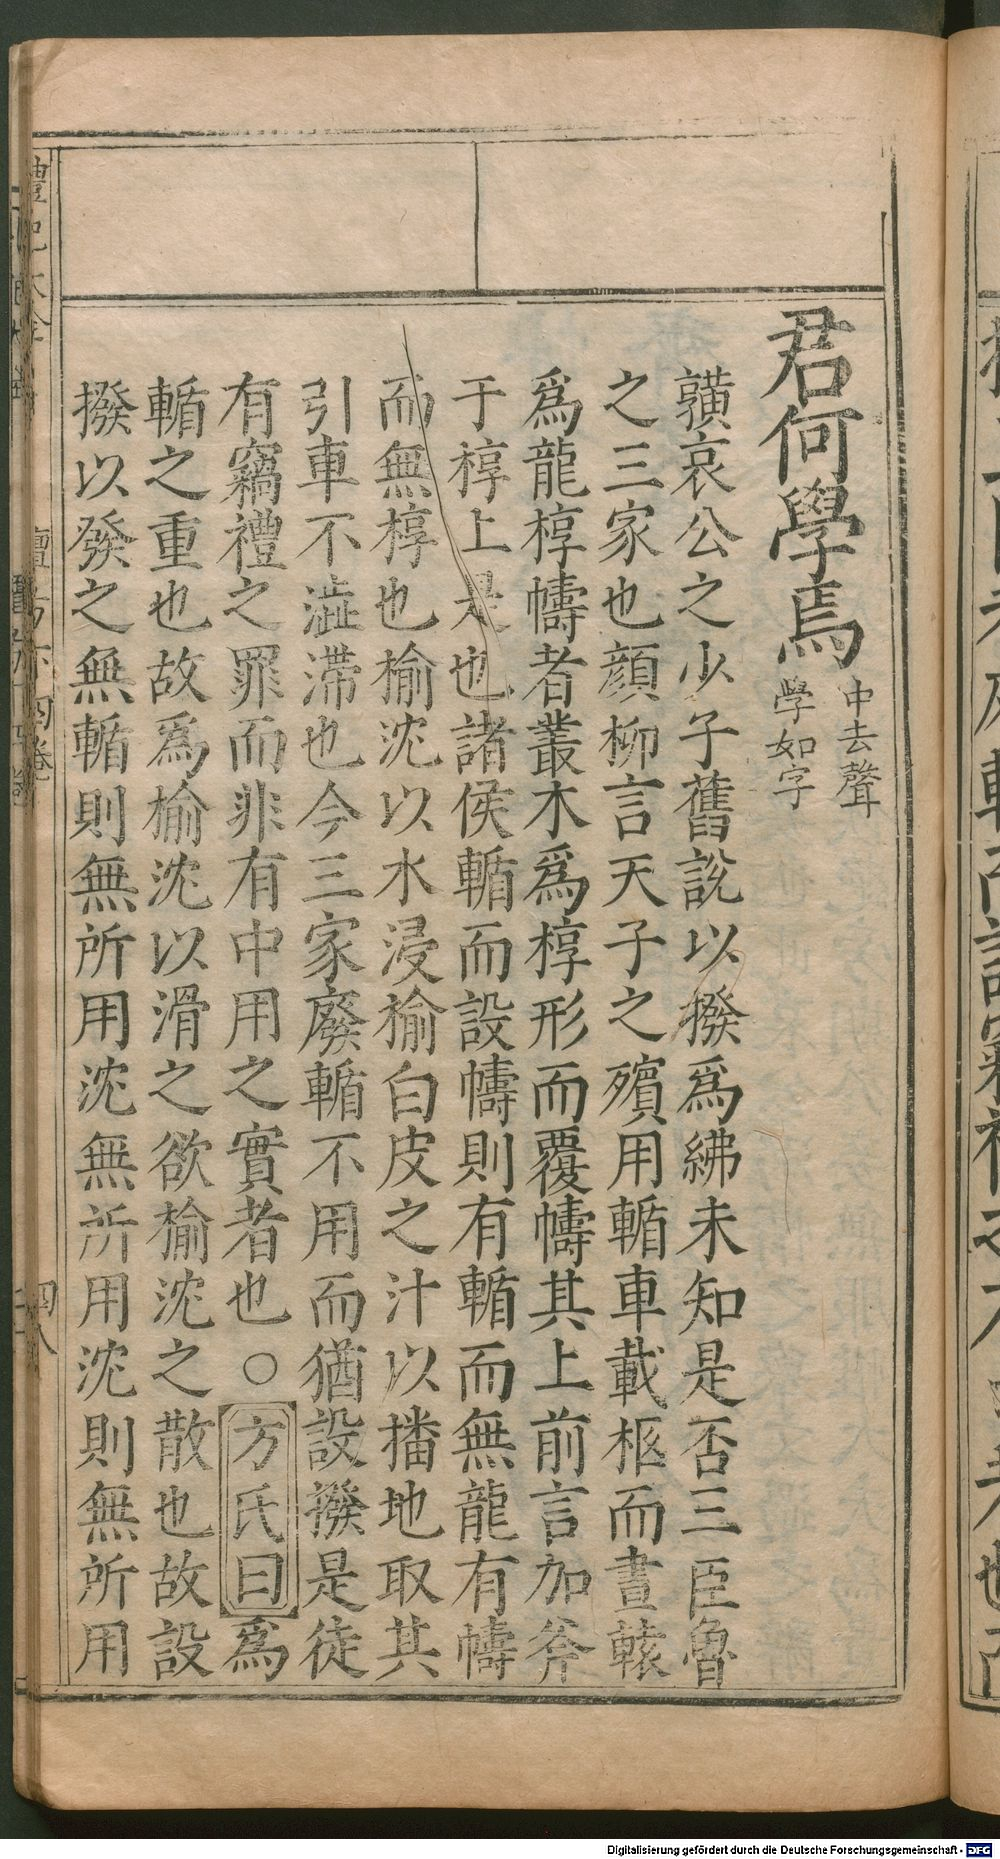 君何學焉
中去聲
學如字
䵃哀公之少子舊說以撥爲紼未知是否三臣魯
之三家也顏柳言天子之殯用輴車載柩而畫轅
爲龍椁幬者叢木爲椁形而覆幬其上前言加斧
于椁上是也諸侯輴而設幬則有輴而無龍有幬
而無椁也榆沈以水浸榆白皮之汁以播地取其
引車不澁滯也今三家廢輴不用而猶設撥是徒
有竊禮之罪而非有中用之實者也○方氏曰爲
輴之重也故爲榆沈以滑之欲榆沈之散也故設
撥以發之無輴則無所用沈無所用沈則無所用
禮記大全
檀弓下四卷
四八
Digitalisierung gefördert durch die Deutsche Forschungsgemeinschaft - DFG